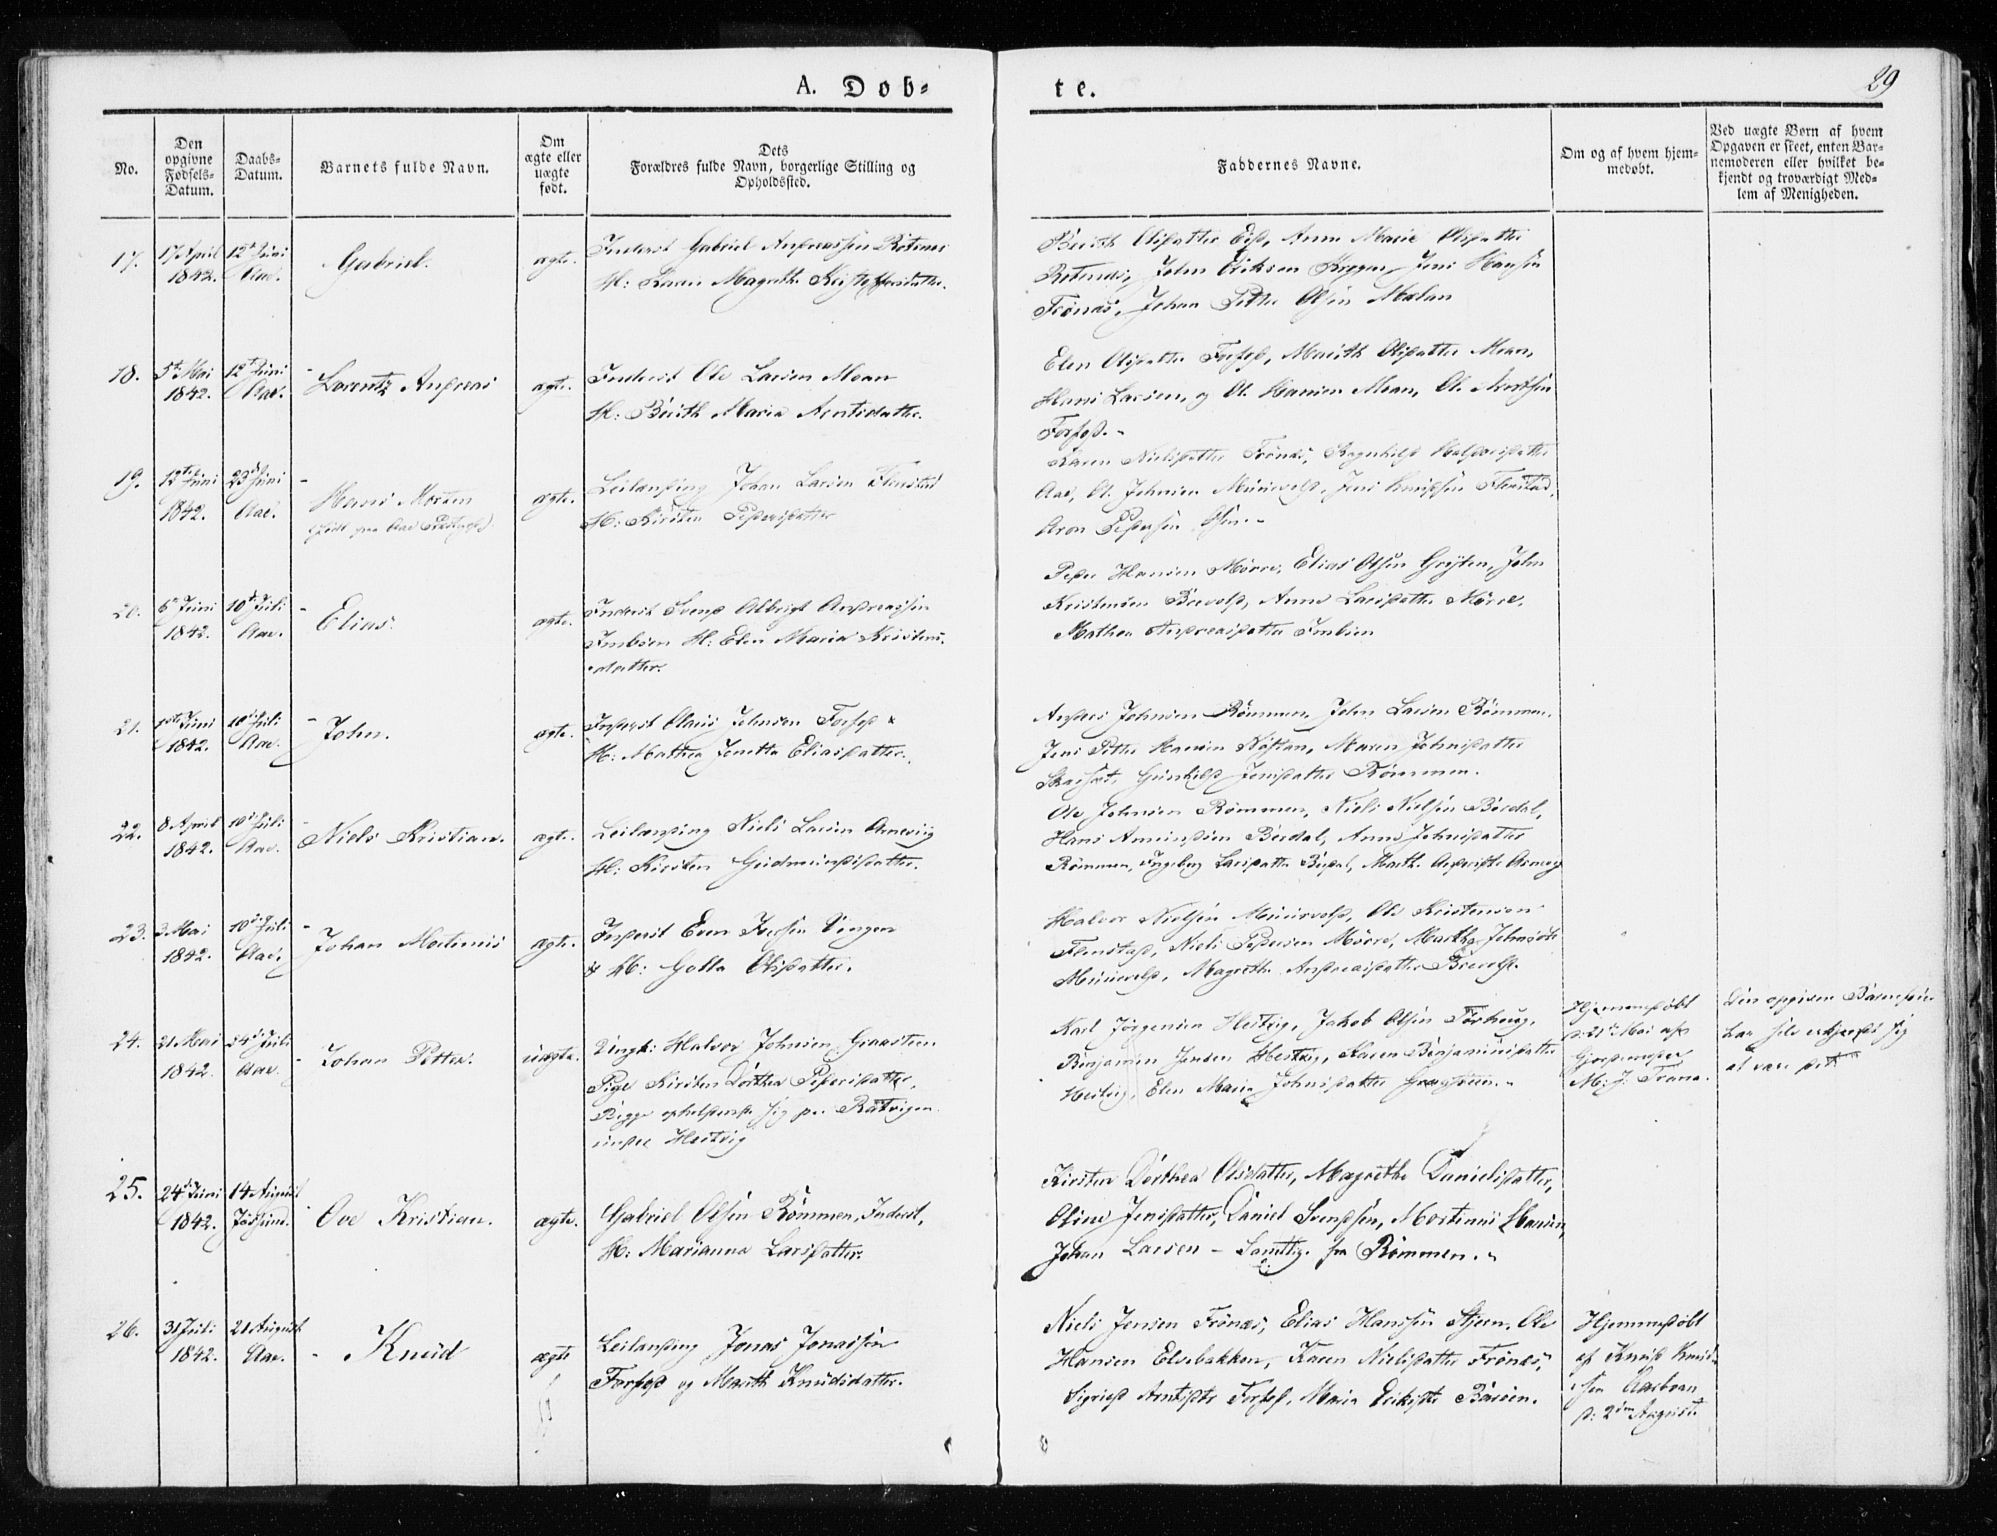 A. Døb-
te.
29
No.
Den opgivne Fødsels-Datum.
Daabs-Datum.
Barnets fulde Navn.
Om ægte eller uægte født.
Dets Forældres fulde Navn, borgerlige Stilling og Opholdssted.
Faddernes Navne.
Om og af hvem hjem-medøbt.
Ved uægte Børn af hvem Opgaven er skeet, enten Bar-nemoderen eller hvilket be-kjendt og troværdigt Med-lem af Menigheden.
17.
17 April
1842.
12te Juni
Aae.
Gabriel.
ægte.
Inderst Gabriel Andreassen
H: Karen Magrethe Kristoffersdatter.
Berith Olsdatter Eid, Anne Marie Olsdatter
John Eriksen, Jens Hansen
Frönæs, Johan Petter Olsen
18.
5te Mai
1842.
12te Juni
Aae.
Lorentz Andreas
ægte.
Inderst Ole Larsen Moan
H: Berith Maria Arntsdatter.
Elen Olsdatter Forfod, Marith Olsdatter Moan,
Hans Larsen, og Ol. Hansen Moan, Ol.
Forfod.
19.
12te Juni
1842.
23de Juni
Aae.
Hans Morten
ægte.
Leilænding Johan Larsen
H: Kirsten Pedersdatter
Karen Nielsdatter Frönæs,
Aae, Ol. Johnsen, Jens Knudsen Flenstad,
Aron Pedersen
20.
6te Juni
1842.
10de Juli
Aae.
Elias.
ægte.
Inderst Svend Albrigt Andreassen
H: Elen Maria Kristens-
datter.
Peder Hansen Mörre, Elias Olsen Gryten, John
Kristensen Brevold, Anne Larsdatter Mörre,
Mathea Andreasdatter
21.
1ste Juni
1842.
10de Juli
Aae.
John.
ægte.
Inderst Claus Johnsen Forfod &
H: Mathea Jonetta Eliasdatter.
Anders Johnsen Römmen, John Larsen Römmen,
Jens Petter Hansen, Maren Johnsdatter
Gunhild Jensdatter Römmen.
22.
8 April
1842.
10de Juli
Aae.
Niels Kristian.
ægte.
Leilænding Niels Larsen Arnevig
H: Kirsten Gudmundsdatter.
Ole Johnsen Römmen, Niels Nielsen Berdal,
Hans Amundsen Berdal, Anne Johnsdatter
Römmen, Ingeborg Larsdatter
23.
3 Mai
1842.
10de Juli
Aae.
Johan Martinus
ægte.
Inderst Even Iversen Vingen
& H: Golla Olsdatter.
Halvor Nielsen, Ole Kristensen
Flenstad, Niels Pedersen Mörre, Martha
Magrethe Andreasdatter Brevold.
24.
21 Mai
1842
24de Juli
Aae.
Johan Petter.
uægte.
Ungk: Halvor Johnsen
Pige Kirsten Dorthea Pedersdatter,
Begge opholdende sig paa
under Hestvig
Karl Jörgensen Hestvig, Jakob Olsen
Benjamin Jensen Hestvig, Karen Benjaminsdatter
Hestvig, Elen Maria Johnsdatter
Hjemmedöbt
d: 21de Mai af
Gjordemoder
M: J: Frana.
Den opgivne Barnefader
har selv erkjendt sig
at være det
25.
24de Juni
1842.
14 August
Ove Kristian.
ægte.
Gabriel Olsen Römmen, Inderst,
H: Marianna Larsdatter.
Kirsten Dorthea Olsdatter, Magrethe Danielsdatter,
Oline Jensdatter, Daniel Svendsen, Martinus Hansen,
Johan Larsen – Samtlig. fra Römmen.
26.
31 Juli
1842.
21 August
Aae.
Knud
ægte
Leilænding Jonas Jonassen
Forfod og Marith Knudsdatter.
Niels Jensen Frönæs, Elias Hansen Stjern, Ole
Hansen Elvebakken, Karen Nielsdatter Frönæs,
Sigrid Arntsdtr Forfod, Maria
Hjemmedöbt
af Knud Knud-
sen
d: 2den August.